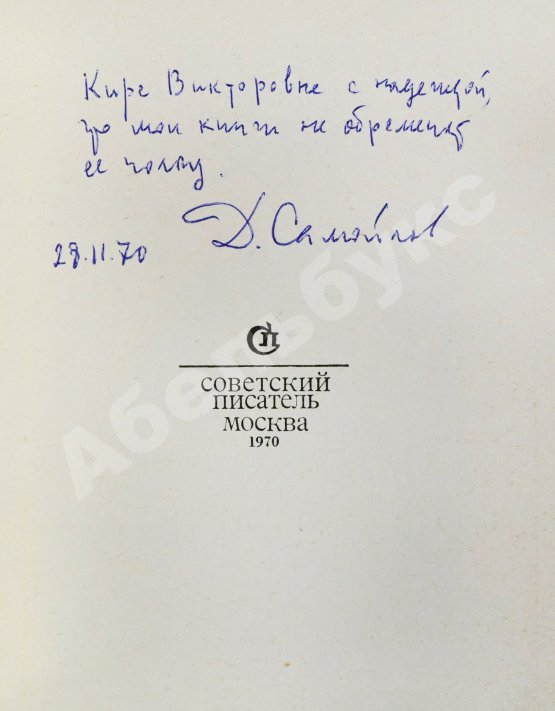 Кире Викторовне с надеждой,
что мои книги не обременят
ее полку.
Д. Самойлов
28.11.70
СП
СОВЕТСКИЙ
ПИСАТЕЛЬ
МОСКВА
1970
Абельбукс